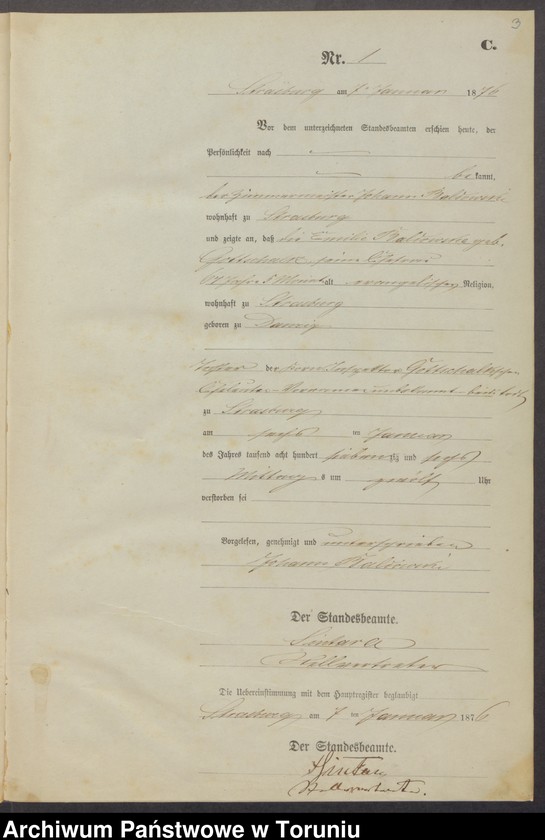 3
C.
Nr. 1
Strasburg am 7 Januar 1876
Vor dem unterzeichneten Standesbeamten erschien heute, der
Persönlichkeit nach
bekannt,
der Zimmermeister Johann
wohnhaft zu Strasburg
und zeigte an, daß die Emilie geb.
Gottschalk, seine Ehefrau
67 Jahr 8 Monat alt evangelischer Religion,
wohnhaft zu Strasburg
geboren zu Danzig
Tochter der Gottschalkschen
Eheleute unbekannt beide todt
zu Strasburg
am sechs ten Januar
des Jahres tausend acht hundert siebenzig und sechs
Mittags um zwölf Uhr
verstorben sei
Vorgelesen, genehmigt und unterschrieben
Johann
Der Standesbeamte.
Stellvertreter
Die Uebereinstimmung mit dem Hauptregister beglaubigt
Strasburg am 7 ten Januar 1876
Der Standesbeamte.
Stellvertreter.
Archiwum Państwowe w Toruniu